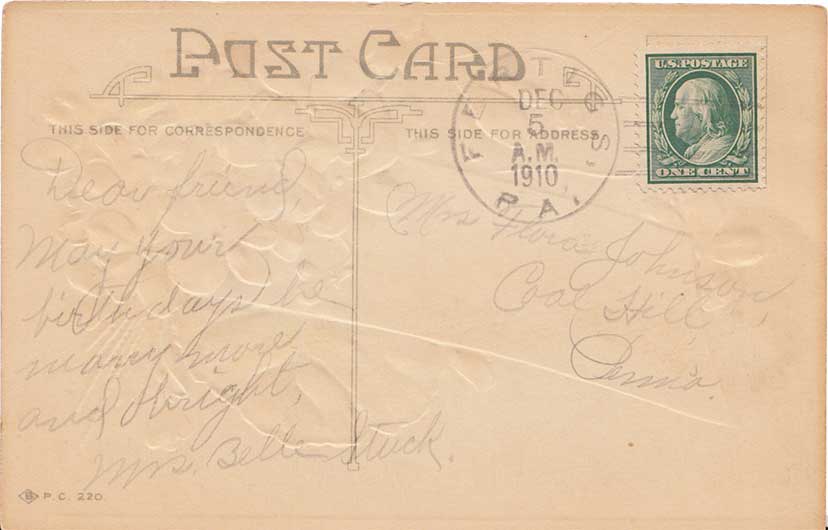 POST CARD
THIS SIDE FOR CORRESPONDENCE
THIS SIDE FOR ADDRESS
DEC
5
A.M.
1910
PA.
U.S. POSTAGE
ONE CENT
Dear friend,
May your
birthdays be
many more
and bright,
Mrs. Belle Stuck.
Mrs Flora Johnson,
Coal Hill,
Penna.
B P.C. 220.